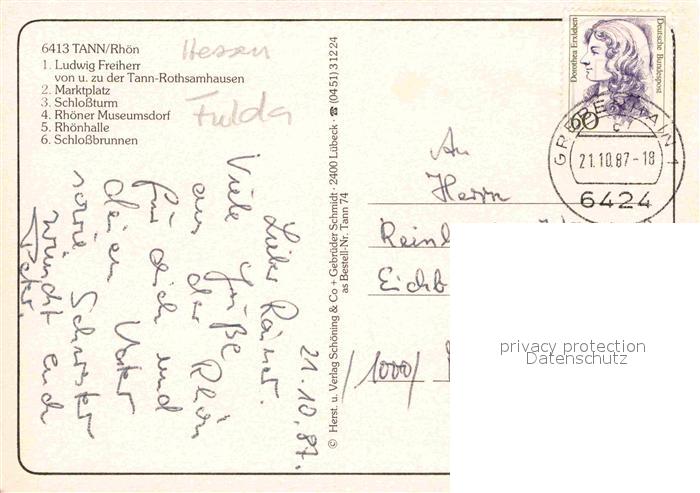 6413 TANN/Rhön
1. Ludwig Freiherr
von u. zu der Tann-Rothsamhausen
2. Marktplatz
3. Schloßturm
4. Rhöner Museumsdorf
5. Rhönhalle
6. Schloßbrunnen
Hessen
Fulda
21.10.87.
Lieber Rainer.
Viele Grüße
aus der Rhön
für dich und
deinen Vater
sowie Schwester
wünscht euch
Peter.
© Herst. u. Verlag Schöning & Co + Gebrüder Schmidt · 2400 Lübeck · ☎ (04 51) 3 12 24
as Bestell-Nr. Tann 74
Dorothea Erxleben
Deutsche Bundespost
60
GREBENHAIN 1
c
21.10.87-18
6424
An
Herrn
Rein
Eichb
1000/
privacy protection
Datenschutz